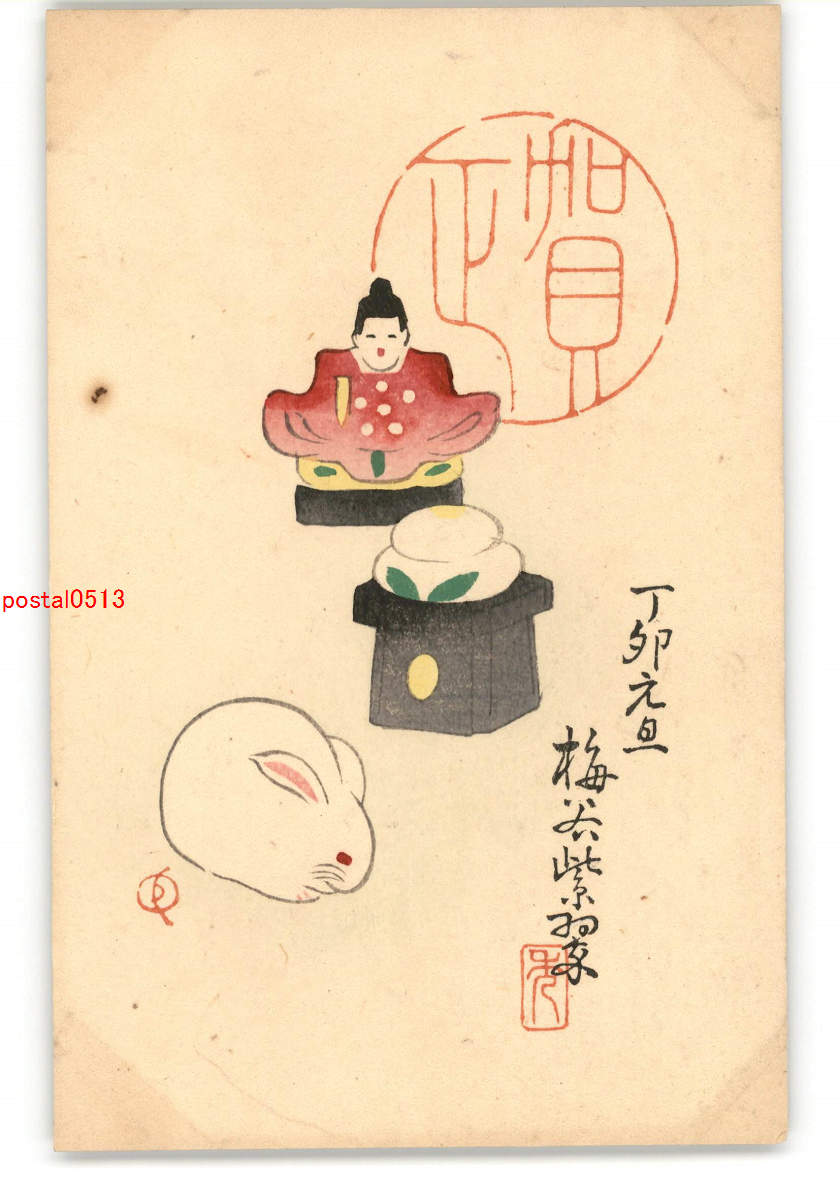 賀正
丁卯元旦
梅谷紫翠
postal0513